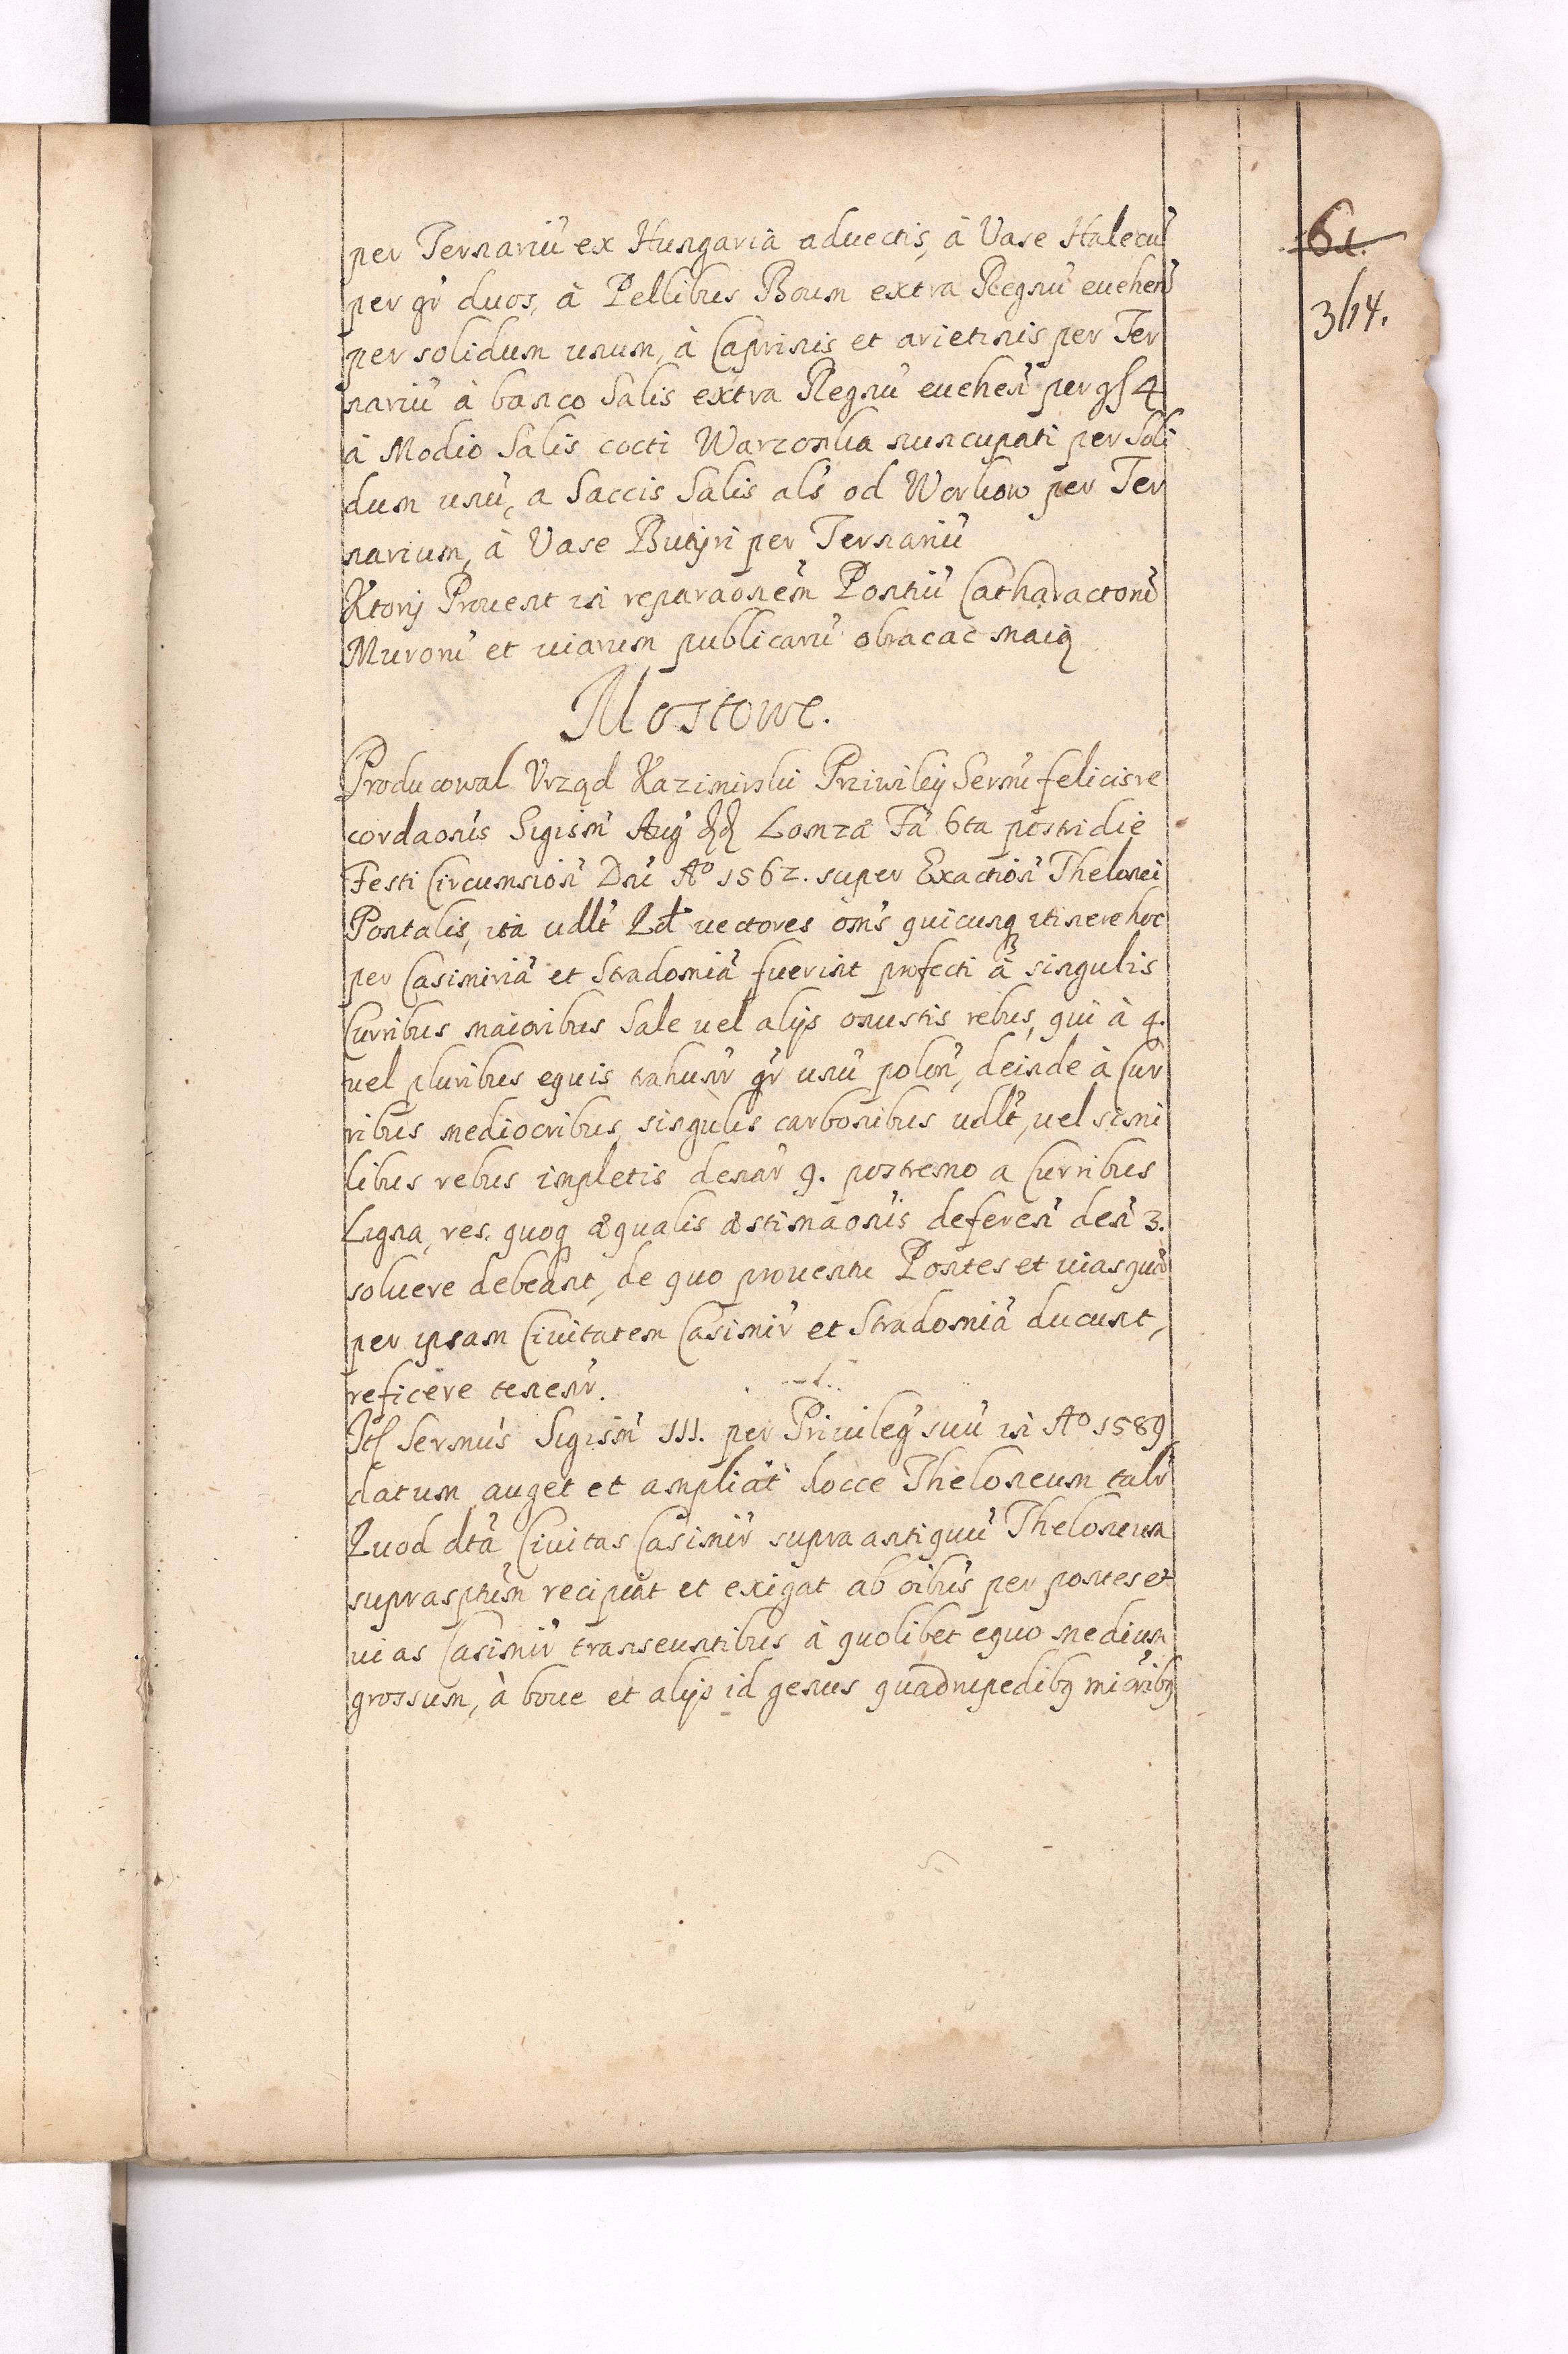 per Ternariũ ex Hungaria aduectis, à Vase Halecũ
per gr̃ duos, à Pellibus Boum extra Regnũ euehen̄
per solidum unum, à Caprinis et arietinis per Ter
nariũ à banco Salis extra Regnũ euehen̄ per gſ 4
à Modio Salis cocti Warzonka nuncupati per Soli
dum unũ, a Saccis Salis als od Workow per Ter
narium, à Vase Butÿri per Ternariũ
Ktorÿ Prouent in reparaōnem Pontiũ Catharactorũ
Murorũ et uiarum publicarũ obracac maią
Mostowe.
Producowal Vrząd Kazimirski Priwileÿ Sermĩ felicis re
cordaōnis Sigism̃ Aug̃ Lomzæ Fã 6ta postridie
Festi Circumsiōn Dnĩ Aº 1562. super Exactiōn Thelonei
Pontalis, ità udlt̃ Qd̃ uectores oms̃ quicunq̨ itinere hoc
per Casimiriã et Stradomiã fuerint profecti à singulis
Curribus maioribus Sale uel alÿs onustis rebus, qui à 4.
uel pluribus equis trahunr̃ gr̃ unũ polon̄, deinde à Cur
ribus mediocribus, singulis carbonibus udlt̃, uel simi
libus rebus impletis denar̃ 9. postremo a Curribus
Ligna, res. quoq̨ æqualis æstimaōnis deferen̄ den̄ 3.
soluere debeant, de quo prouentu Pontes et uias quæ
per ipsam Ciuitatem Casimir̃ et Stradomiã ducunt,
reficere tenenr̃.
Itſ Sermus̃ Sigism̃ III. per Priuileg̃ suũ in Aº 1589
datum auget et ampliat hocce Theloneum talr̃
Quod dtã Ciuitas Casimir̃ supra antiquũ Theloneum
suprasptũm recipiat et exigat ab oibũs per pontes et
uias Casimir̃ transeuntibus à quolibet equo medium
grossum, à boue et alÿs id genus quadrupedibq̨ mioribq̨
61.
314.